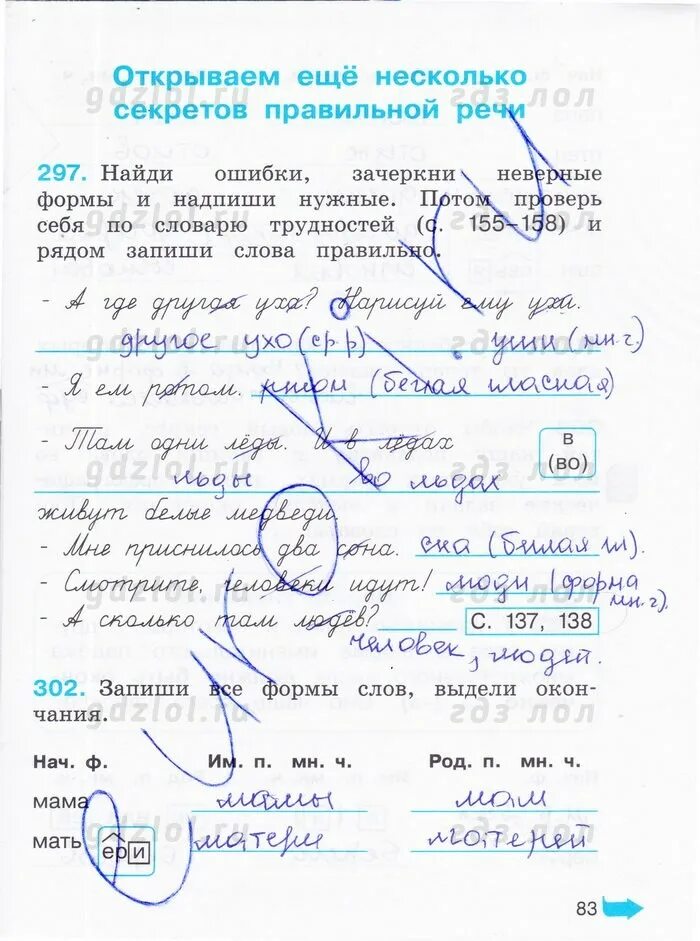 Открываем ещё несколько
секретов правильной речи
gdzlol.ru гдз лол
297. Найди ошибки, зачеркни неверные
формы и надпиши нужные. Потом проверь
себя по словарю трудностей (с. 155–158) и
рядом запиши слова правильно.
- А где другая уха? Нарисуй ему ухи.
другое ухо (ср.р) уши (мн.ч.)
- Я ем ротом. ртом (беглая гласная)
- Там одни лёды. И в лёдах
в
(во)
льды во льдах
живут белые медведи.
- Мне приснилось два сона. сна (беглая гл).
- Смотрите, человеки идут! люди (форма
мн.ч).
- А сколько там людёв? С. 137, 138
человек, людей.
302. Запиши все формы слов, выдели окон-
чания.
gdzlol.ru гдз лол
Нач. ф. Им. п. мн. ч. Род. п. мн. ч.
мама мамы мам
мать ери матери матерей
83